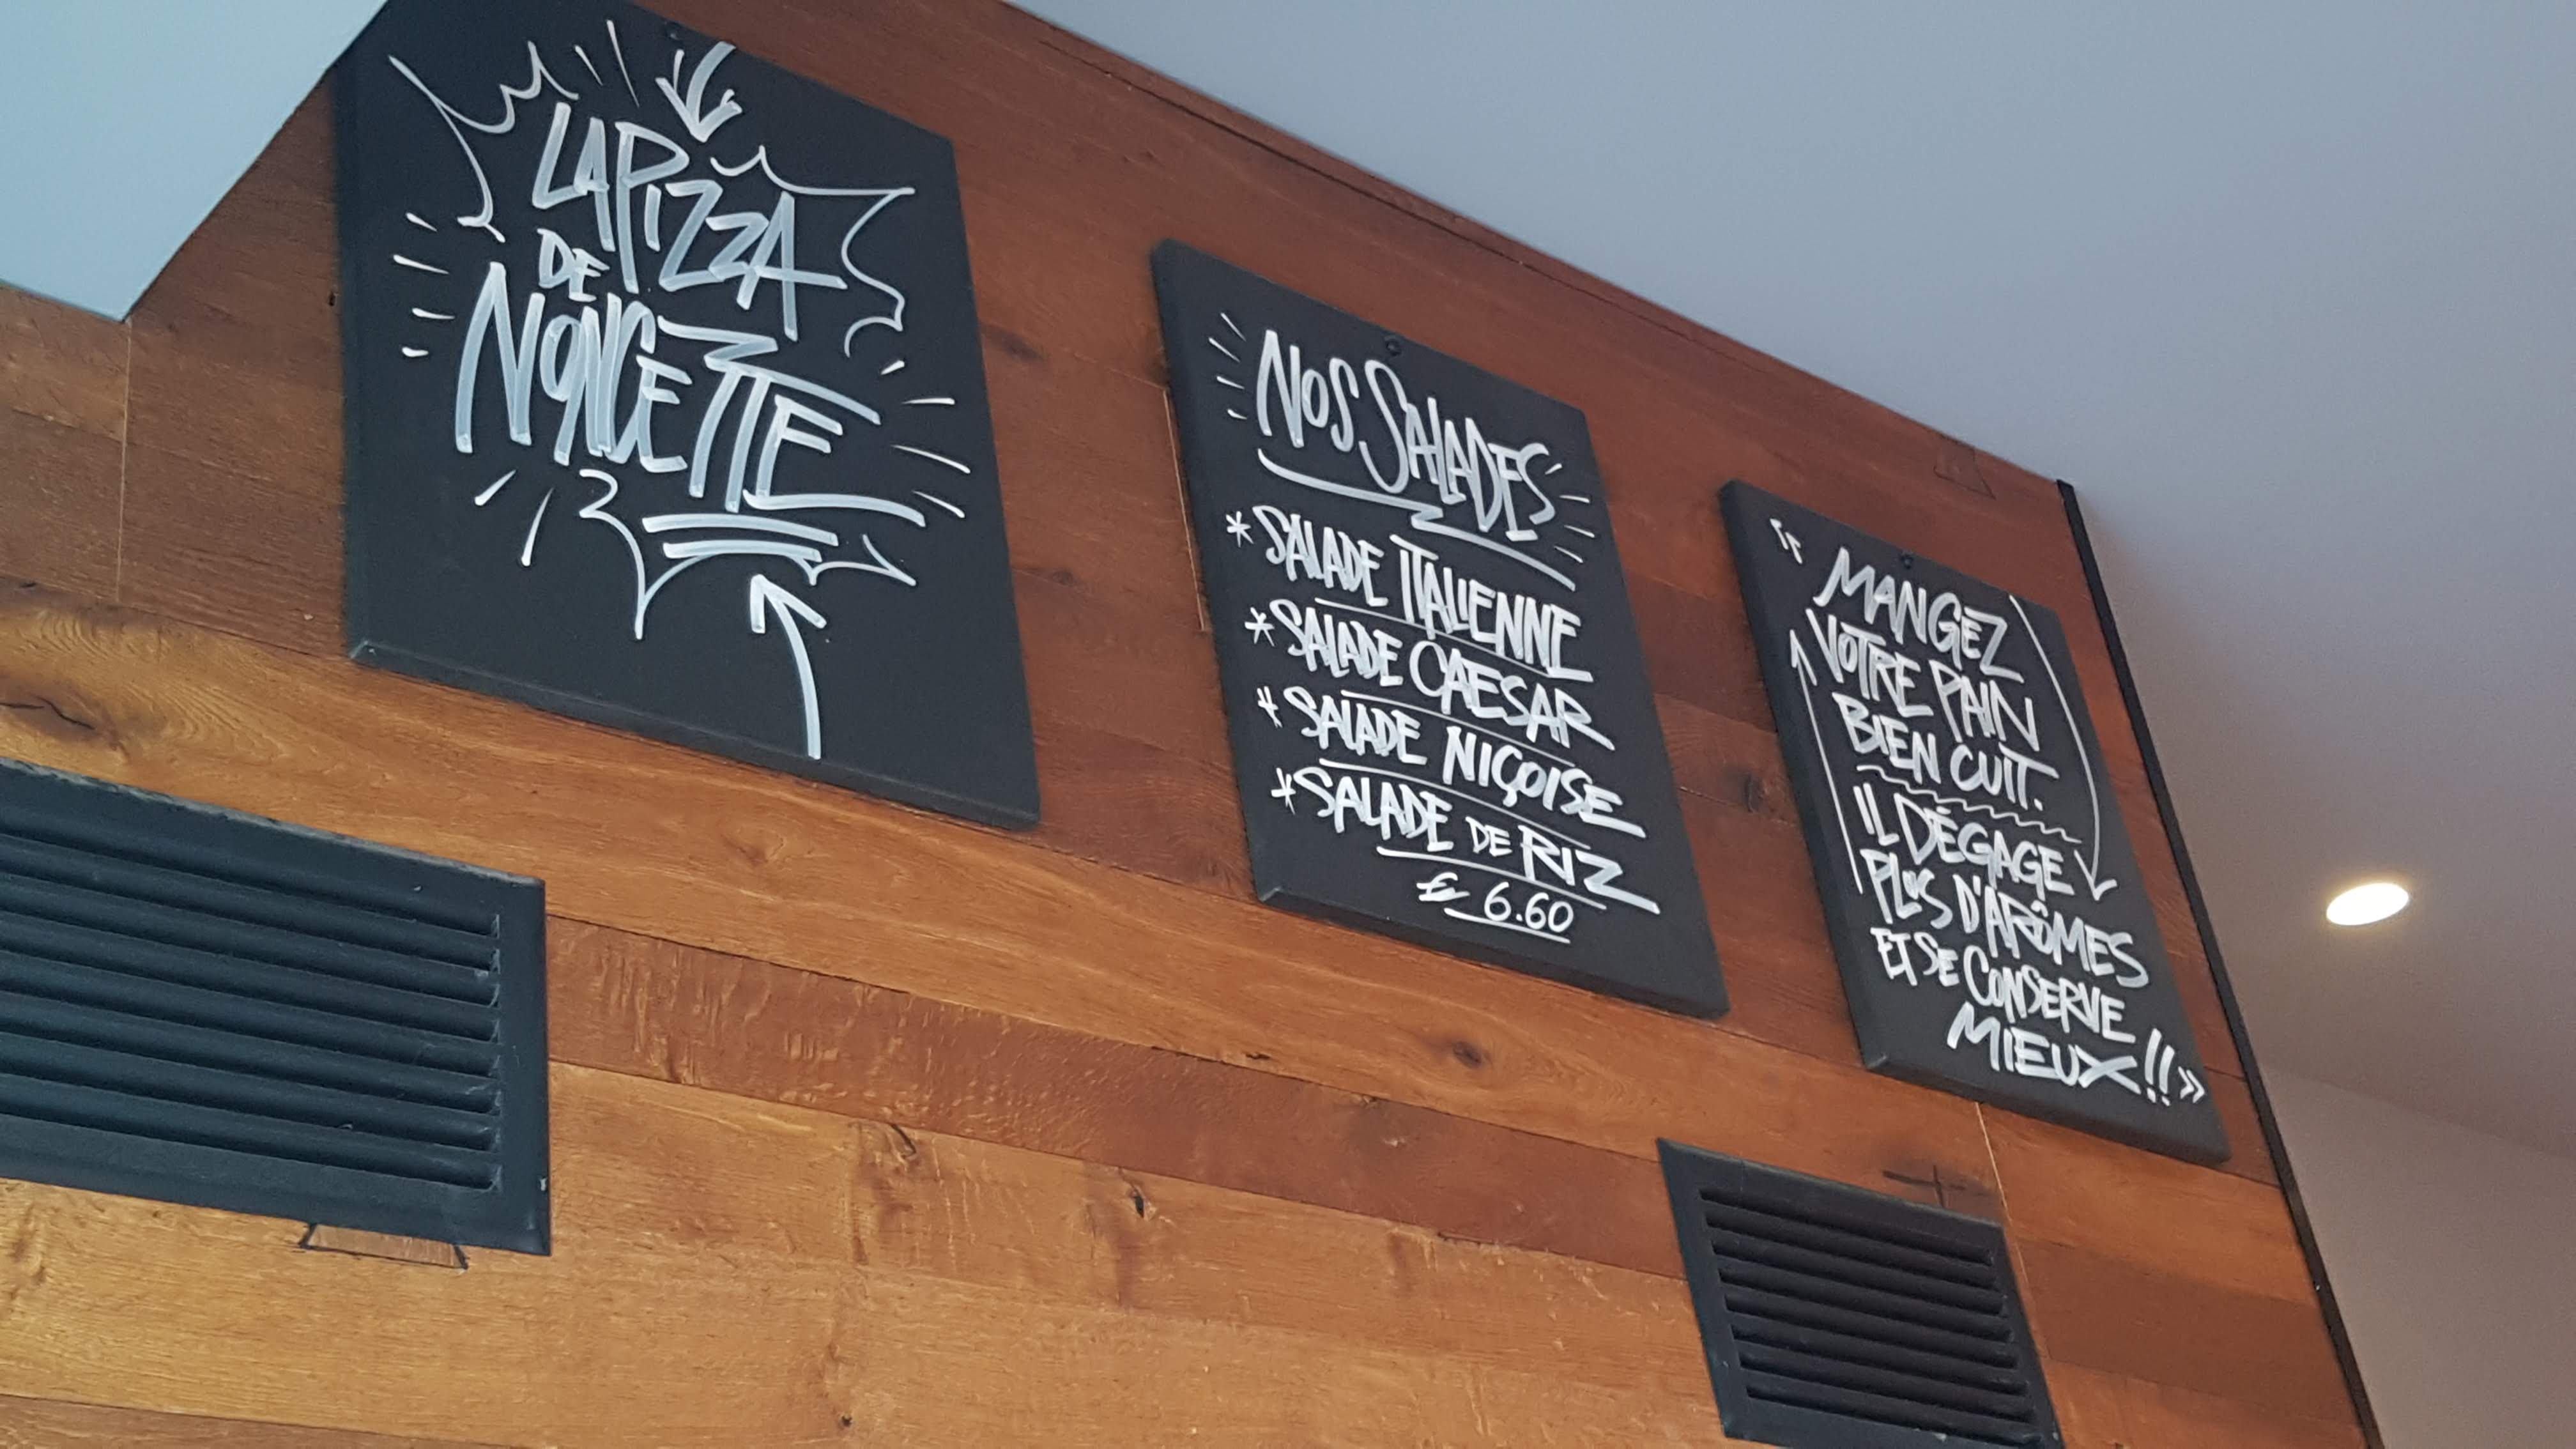 LA PIZZA
DE
NONCETTE
NOS SALADES
* SALADE ITALIENNE
* SALADE CAESAR
* SALADE NIÇOISE
* SALADE DE RIZ
€ 6.60
" MANGEZ
VOTRE PAIN
BIEN CUIT.
IL DÉGAGE
PLUS D'ARÔMES
ET SE CONSERVE
MIEUX !! »